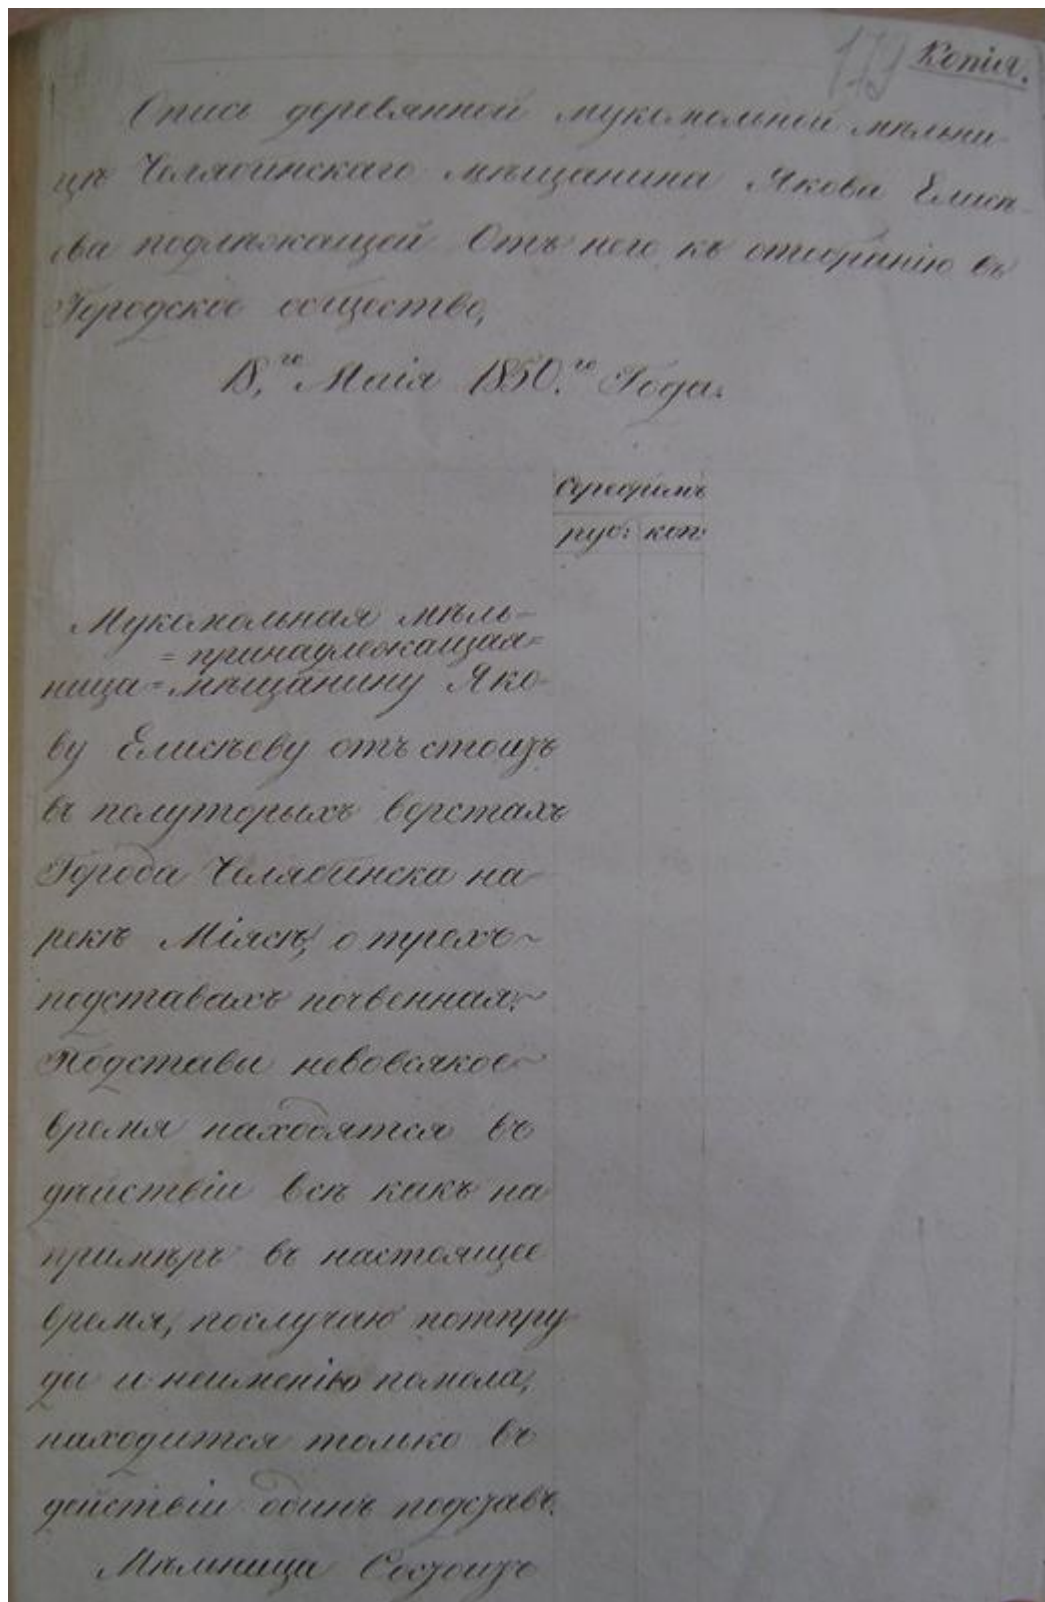 179 Копія.
Опись деревянной мукомольной мѣльни
цѣ Челябинскаго мѣщанина Якова Елисѣ
ева подлежащей Отъ него къ отобранію въ
Городское общество,
18.го Маія 1850.го Года.
Серебромъ
руб: коп:
Мукомольная мѣль-
=принадлежащая=
ница=мѣщанину Яко-
ву Елисѣеву отъ стоитъ
въ полуторыхъ верстахъ
Города Челябинска на
рекѣ Міясѣ, о трехъ~
подставахъ почвенная.~
Подставы невовсякое~
время находятся въ
дѣйствіи всѣ какъ на
примѣръ въ настоящее
время, послучаю
ды и неименію помола,
находится только въ
действіи одинъ подставъ.
Мѣльница Состоитъ